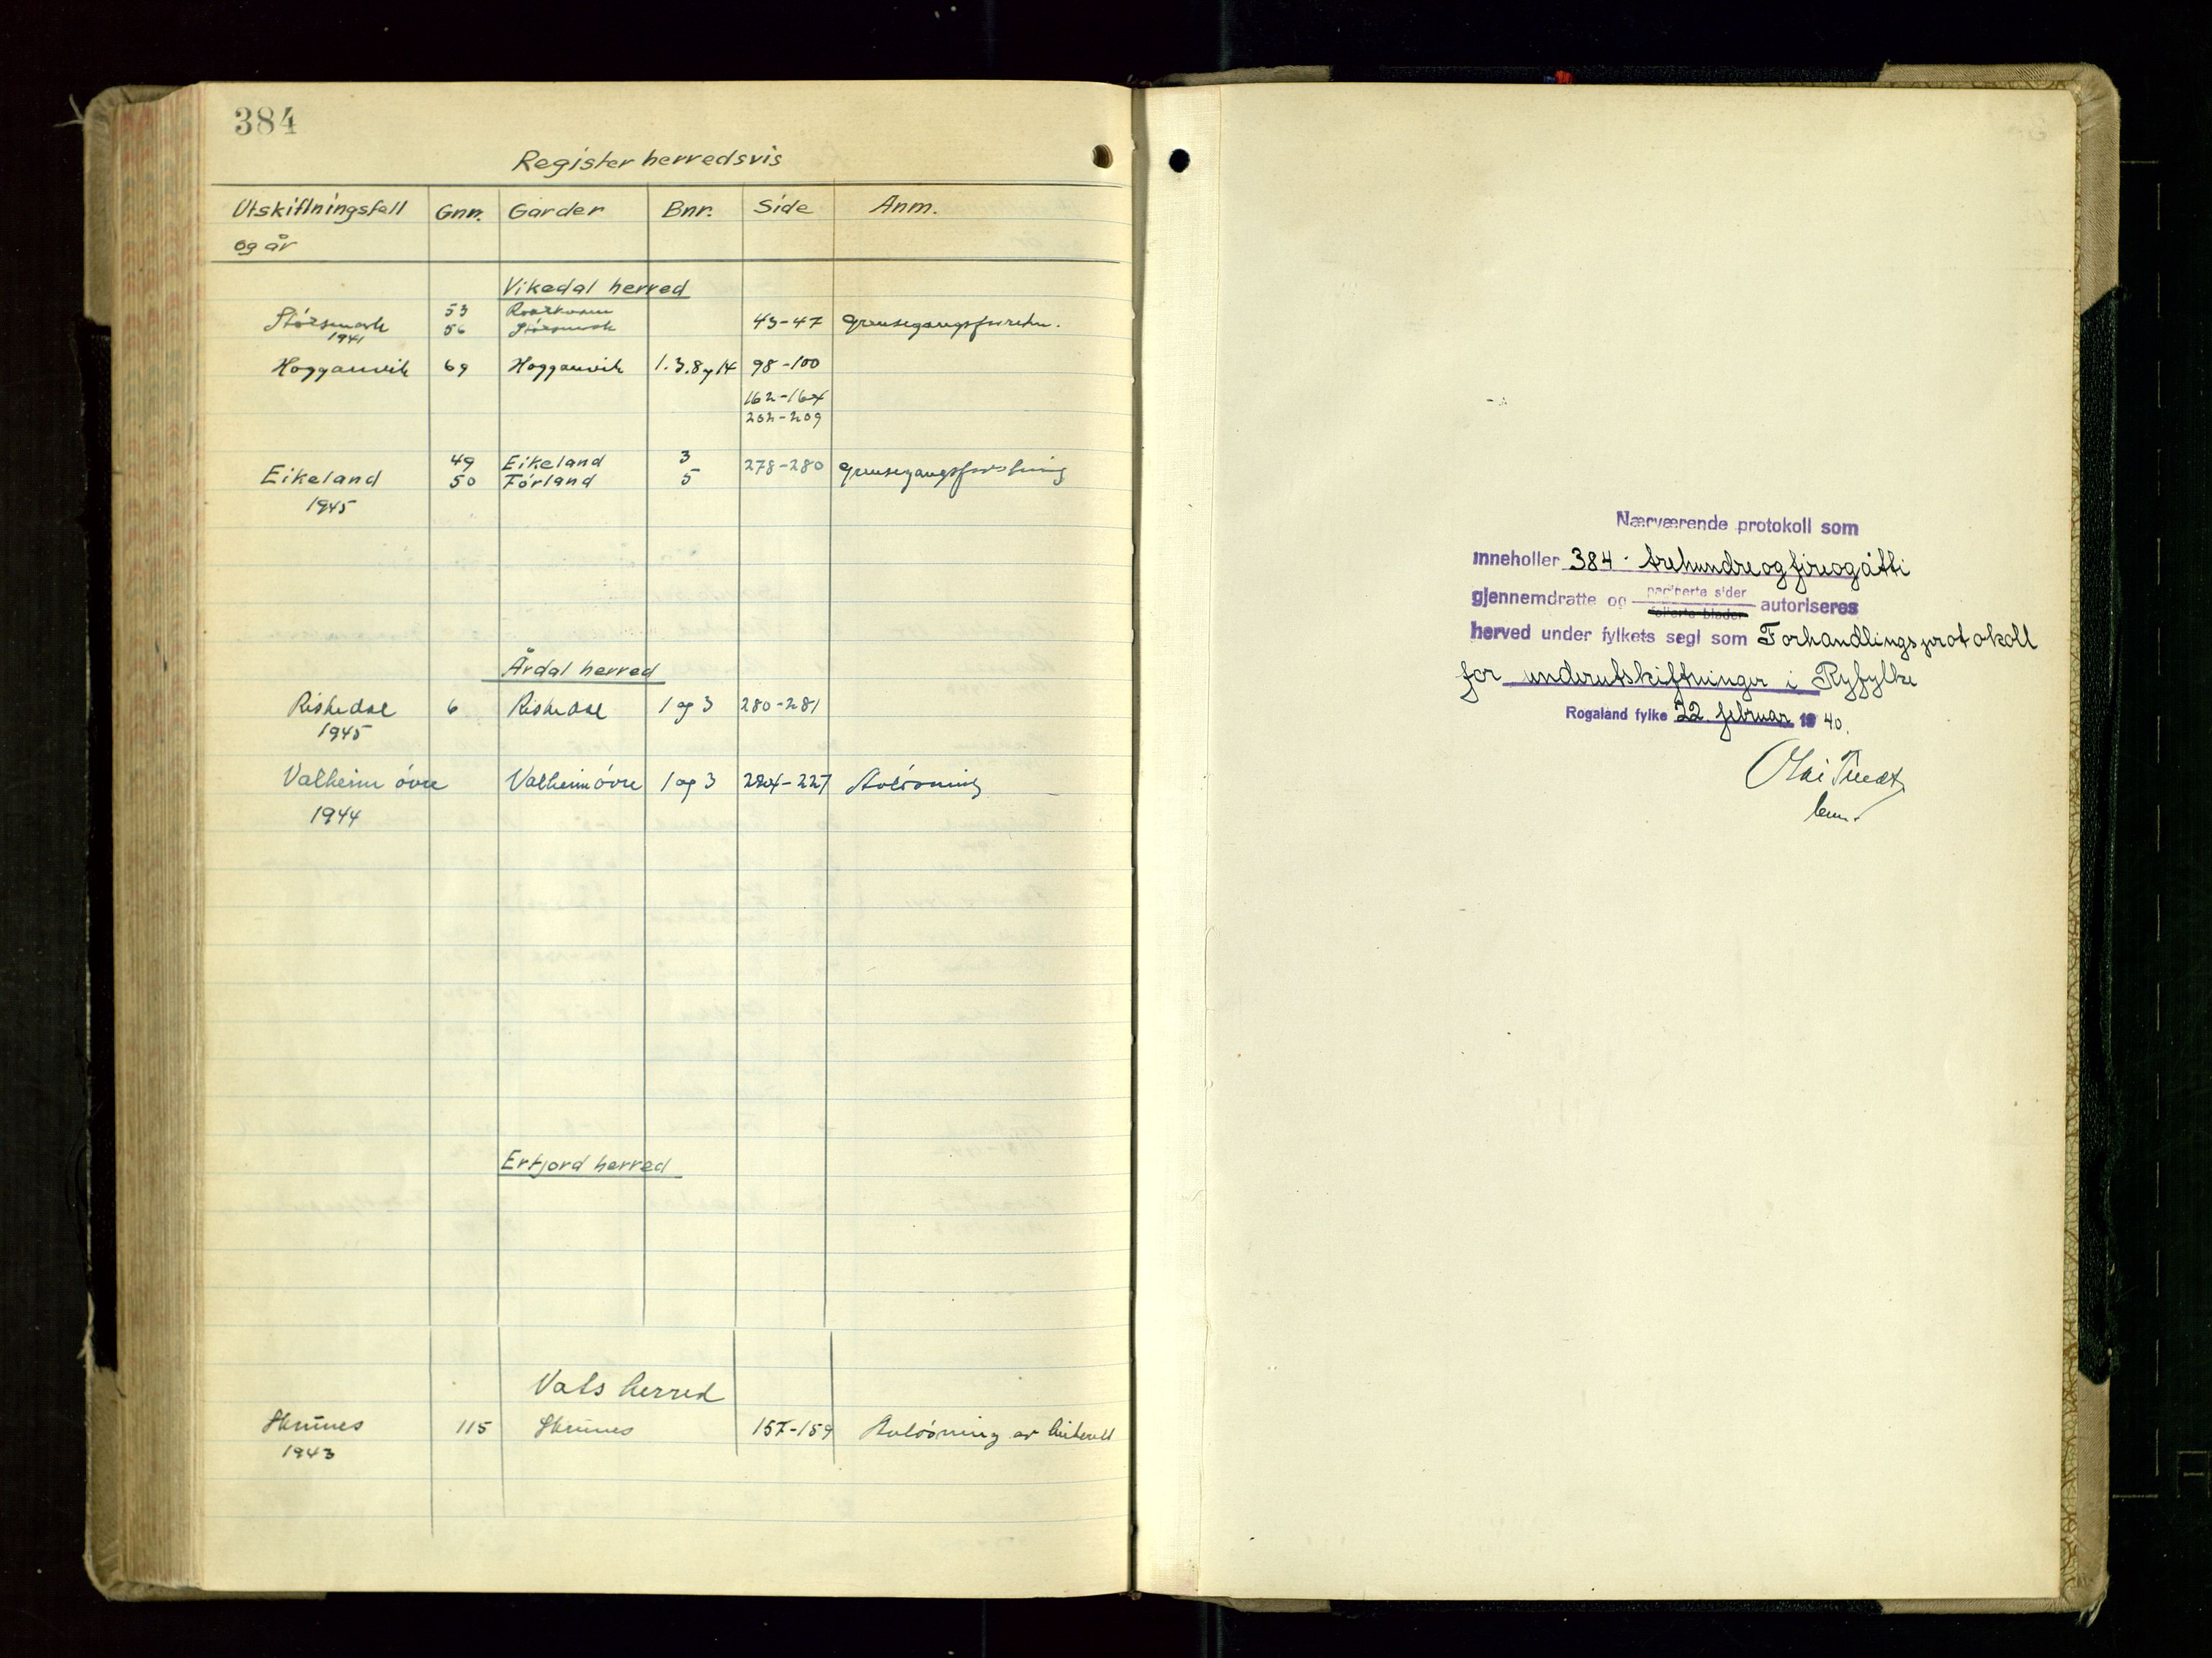 384
Register herredsvis
Utskiftningsfall og år Gnr. Garder Bnr. Side Anm.
Vikedal herred
53
Størsmark 56 Størsmark 43-47 Grensegangsforretn.
1941
Hogganvik 69 Hogganvik 1.3.8 og 14 98-100
162-164
202-209
49 Eikeland 3 278-280
Eikeland 50 Førland 5
1945
Årdal herred
Riskedal 6 Riskedal 1 og 3 280-281
1945
Valheim øvre Valheim øvre 1 og 3 224-227 Avløsning
1944
Erfjord herred
Vats herred
Skrunes 115 Skrunes 157-159 Avløsning av
1943
Nærværende protokoll som
inneholler 384 - trehundreogfireogåtti
gjennemdratte og paginerte sider autoriseres
folierte blader
herved under fylkets segl som Forhandlingsprotokoll
for underutskiftninger i Ryfylke
Rogaland fylke 22. februar 1940.